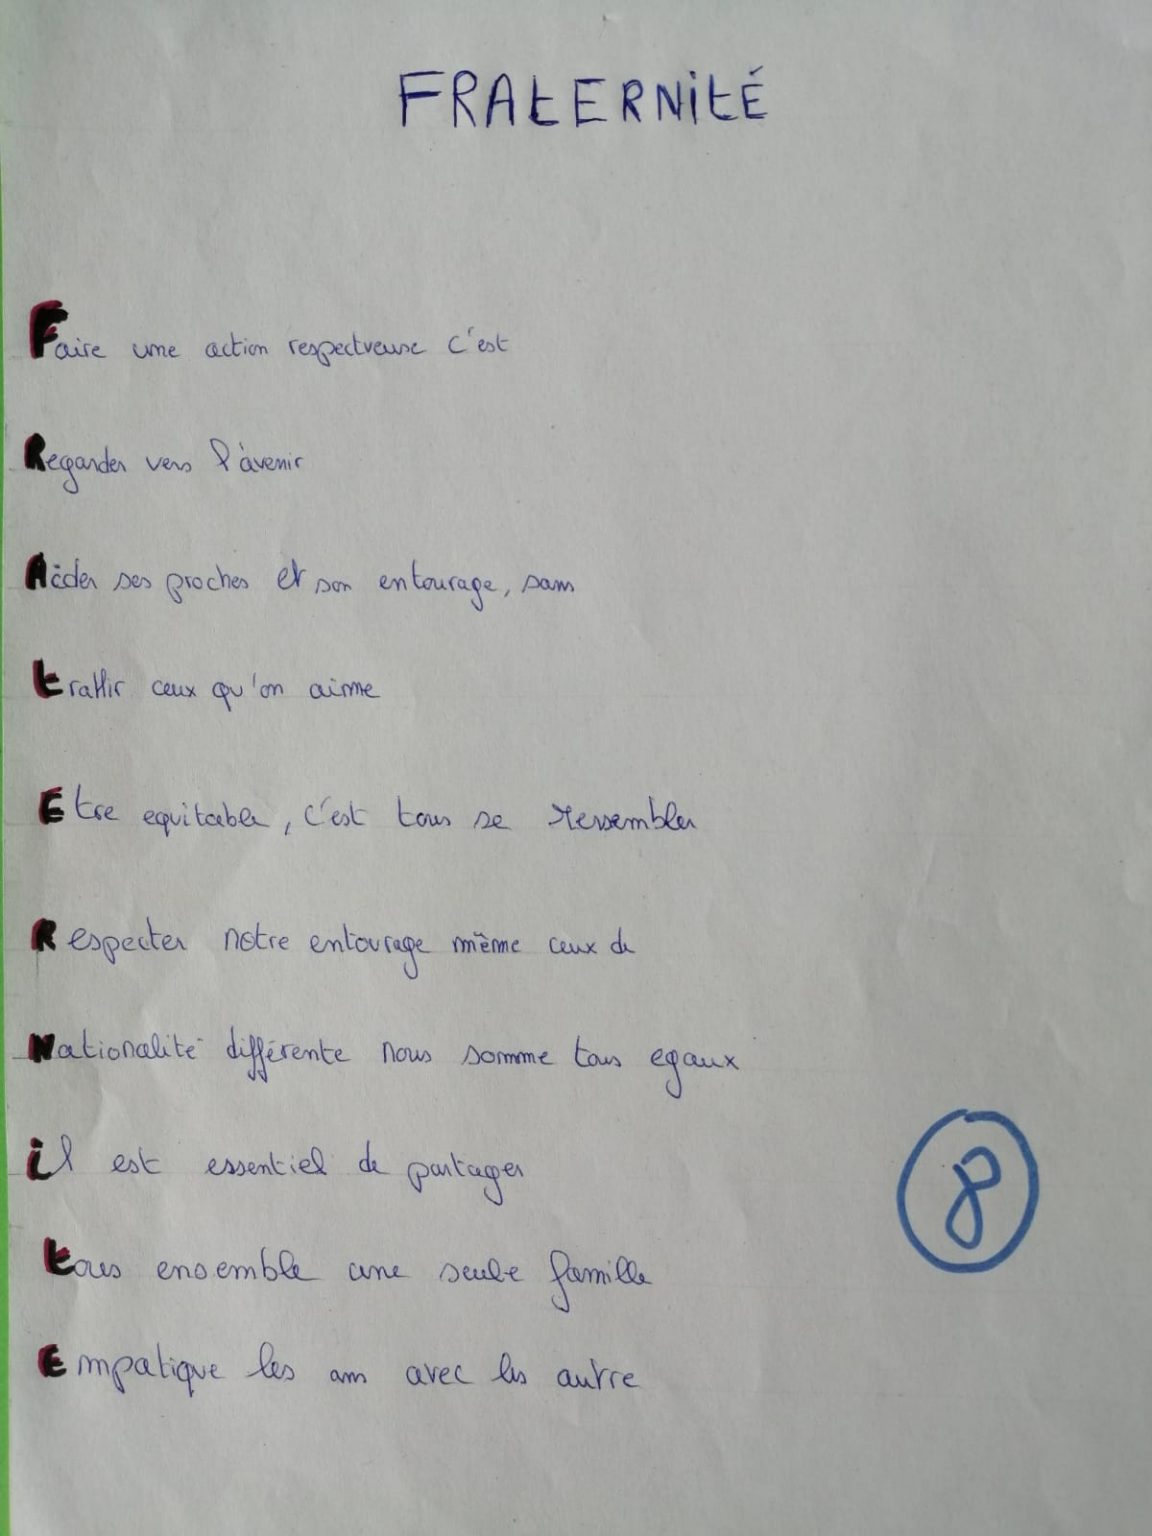 FRAtERNité
Faire une action respectueuse c'est
Regarder vers l'avenir
Aider ses proches et son entourage, sans
trahir ceux qu'on aime
Etre equitable, c'est tous se ressembler
Respecter notre entourage même ceux de
Nationalité différente nous somme tous egaux
il est essentiel de partager
8
tous ensemble une seule famille
Empatique les uns avec les autre